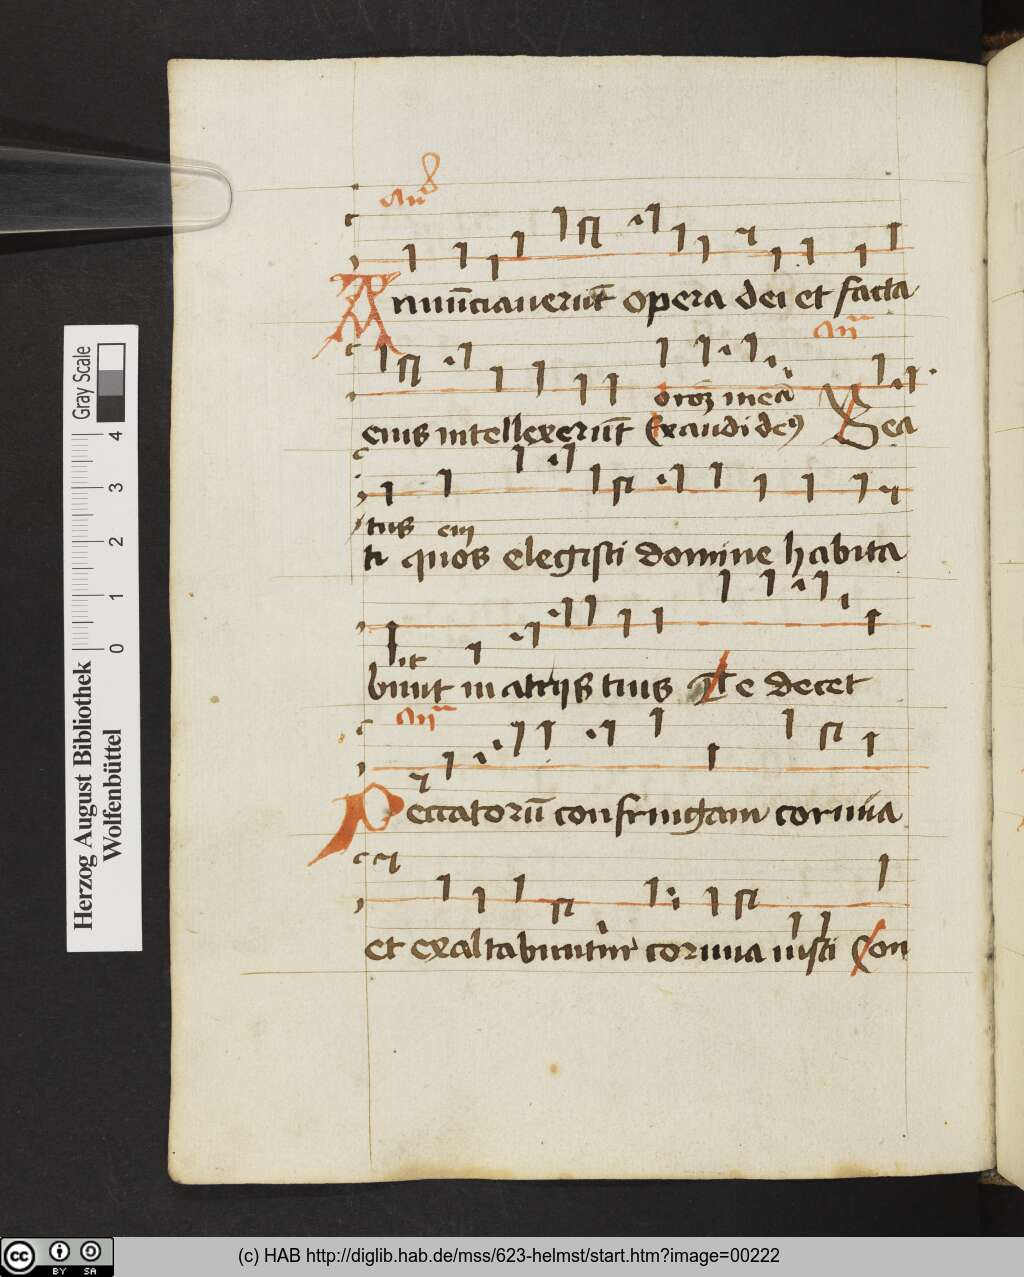 An̄
Annūciauerūt opera dei et facta
An̄
oroȝ meā
eius intellexerūt Exaudi deꝯ Bea
tus em
ti quos elegisti domine habita
bunt in atrijs tuis Te decet
An̄
Peccatorū confringam cornua
et exaltabuntur cornua iusti Con
Gray Scale
0 1 2 3 4
Herzog August Bibliothek
Wolfenbüttel
cc BY SA
(c) HAB http://diglib.hab.de/mss/623-helmst/start.htm?image=00222